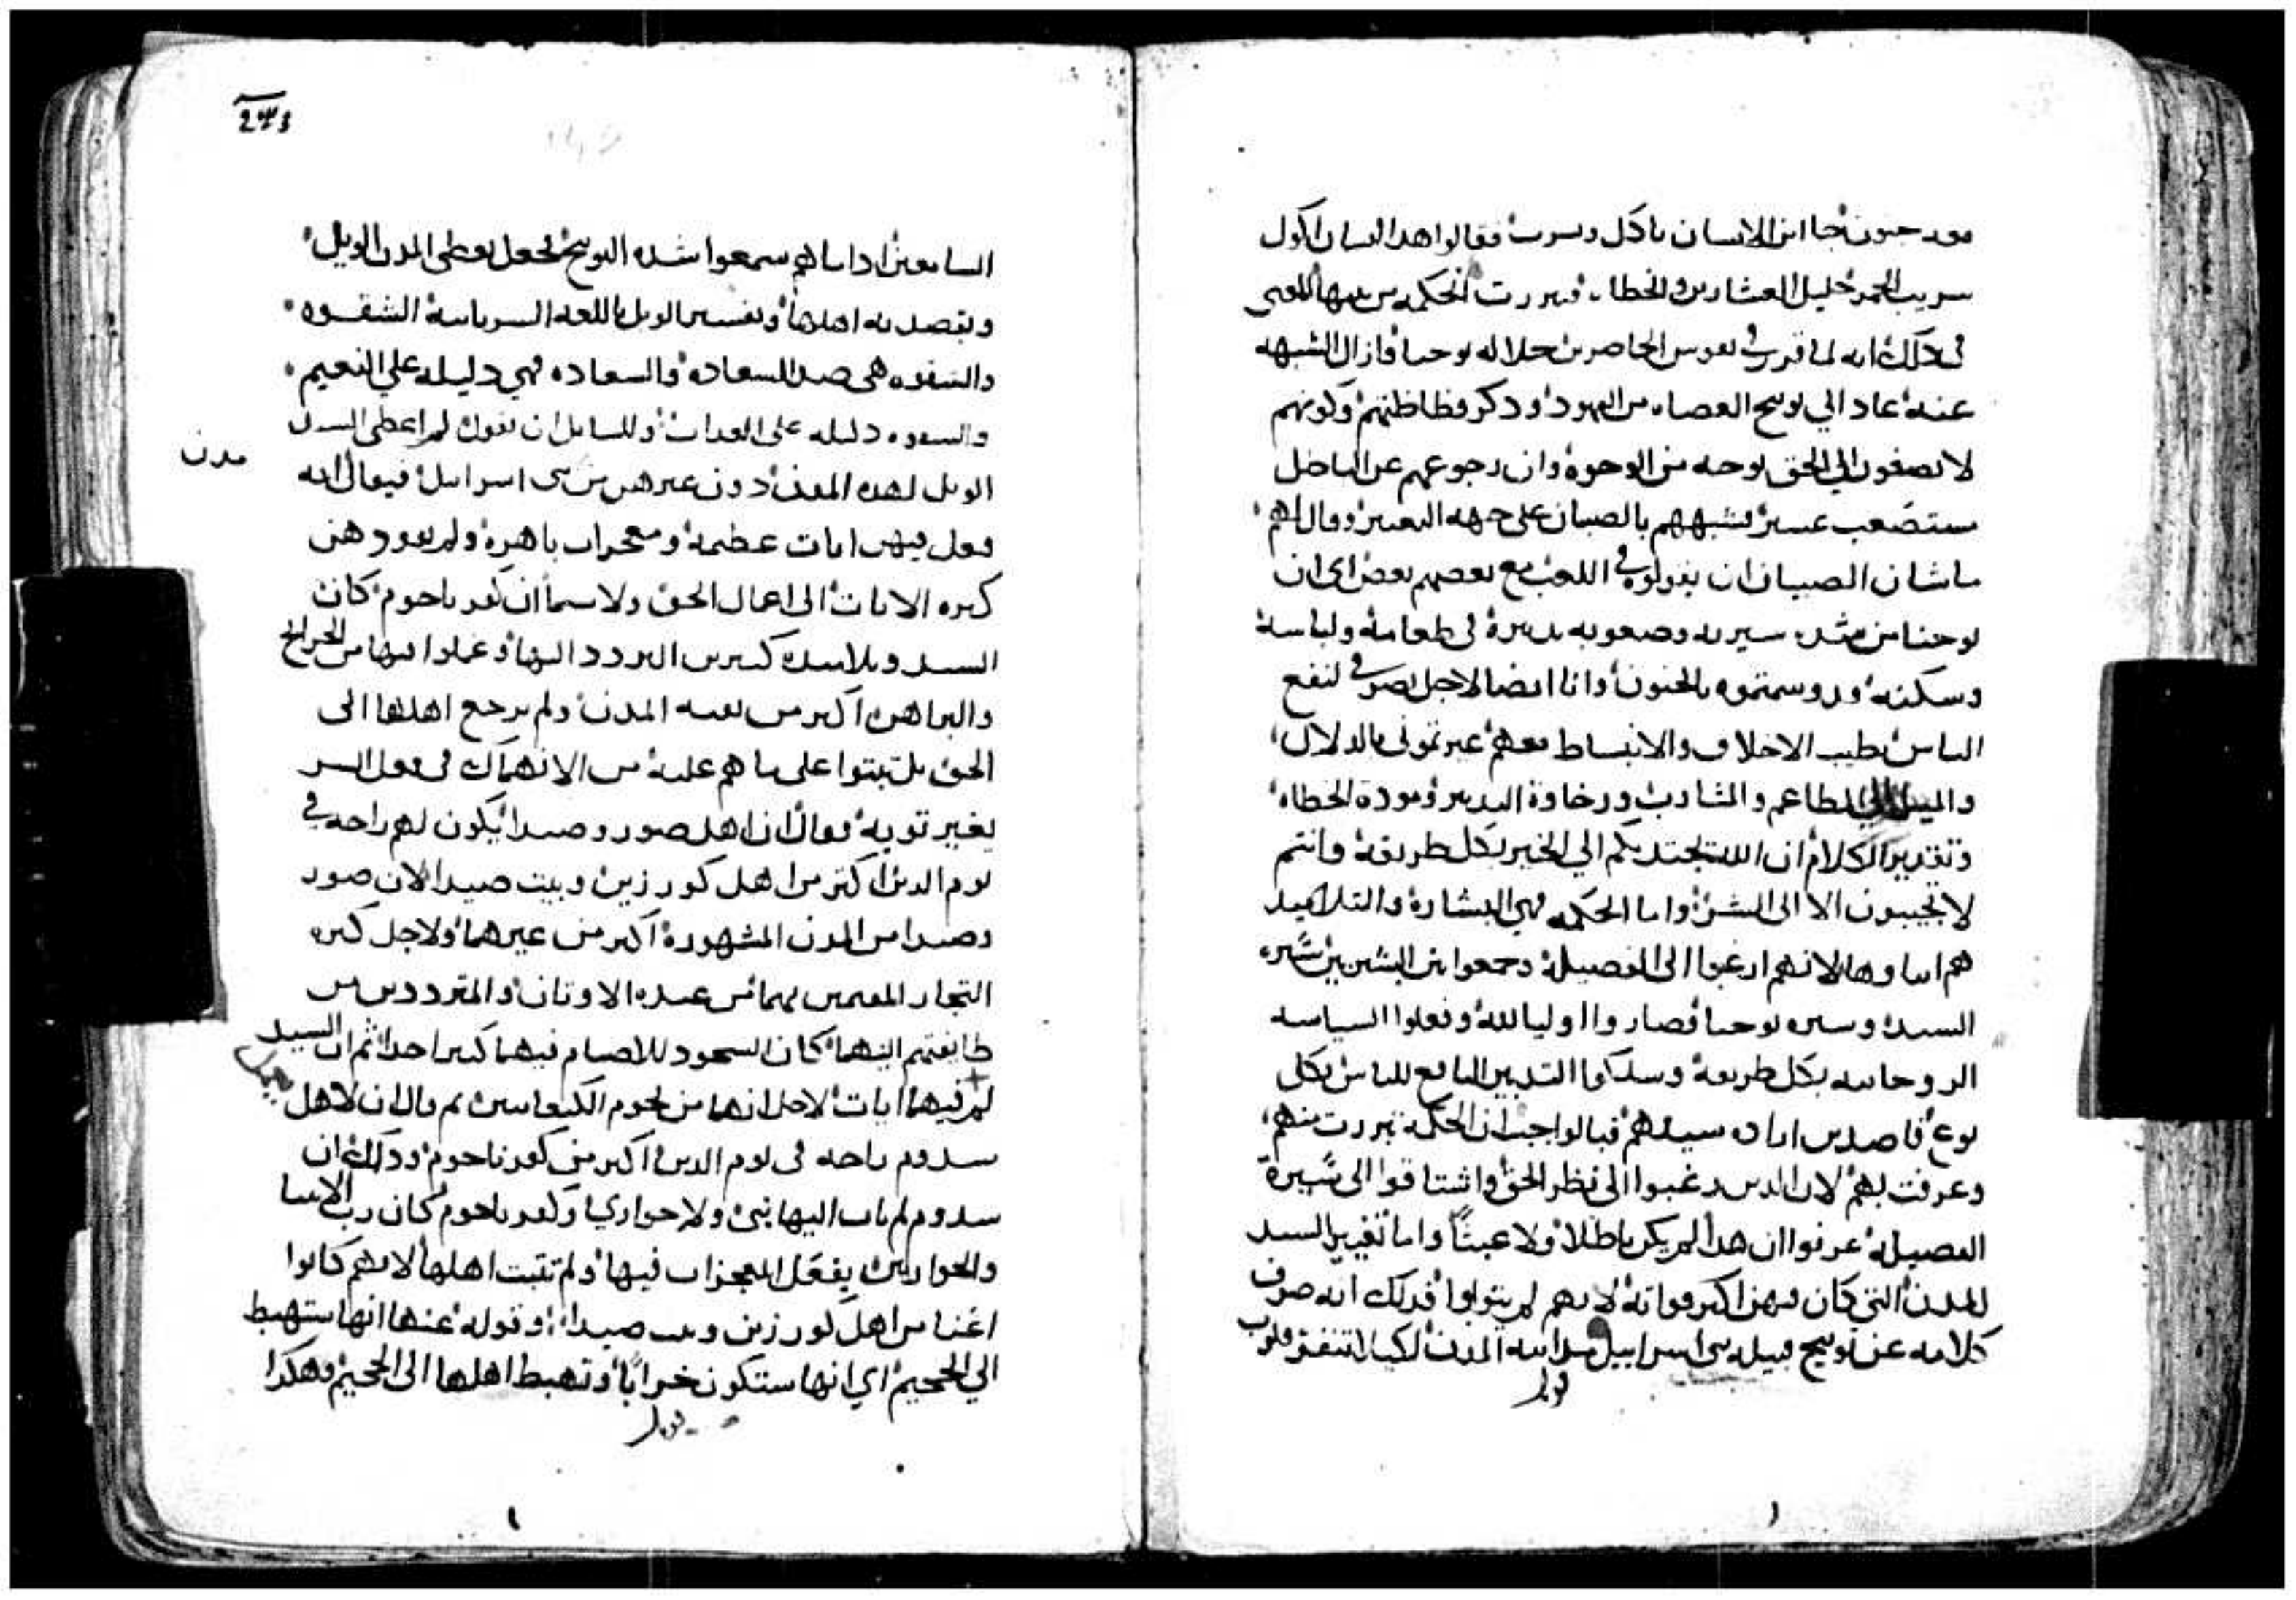 جا ابن الانسان ياكل ويسرب فقالوا هدا انسان اكول
سريب الخمر خليل العشارين والخطاه فبررت الحكمه من بنيها المعنى
في دلك انه لما قرر في نفوس الحاصرين جلاله يوحنا وازال الشبهه
عنه عاد الي توبيخ العصاه من اليهود ودكر فظاظتهم وكونهم
لا يصغون الي الحق بوجه من الوجوه وان رجوعهم عن الباطل
مستصعب عسير فشبههم بالصبيان على جهه التعيير وقال لهم
ماشان الصبيان ان يقولوه في اللعب مع بعضهم بعض اي ان
يوحنا من سيرته وصعوبه تدبيره في طعامه ولباسه
وسكنه وسمتموه بالجنون وانا ايضا لاجل تصرفي لنفع
الناس بطيب الاخلاق والانبساط معهم عيرتموني بالدلال
والميل الي المطاعم والمشارب ورخاوة التدبير ومودة الخطاه
وتقدير الكلام ان الله يجتدبكم الي الخير بكل طريقه وانتم
لا تجيبون الا الى الشر واما الحكمه فهي البشارة والتلاميد
هم ابناوها لانهم ارغبوا الى الفضيلة وجمعوا بين البشريين سيره
السيد وسيره يوحنا فصاروا اوليا لله وفعلوا السياسه
الروحانيه بكل طريقه وسلكوا التدبير النافع للناس بكل
نوع قاصدين سيدهم فبالواجب ان الحكمه تبررت منهم
وعرفت بهم لان الدين رغبوا الى نظر الحق واشتاقوا الى سيرة
الفضيله عرفوا ان هدا لم يكن باطلا ولا عبثا واما تعيير السيد
للمدن التي كان فيهن اكبر قواته لانهم لم يتوبوا فدلك انه صرف
كلامه عن توبيخ قبيله بني اسراييل المدن لكيلا تنفر قلوب
السامعين اداما هم سمعوا شده التوبيخ فجعل يعطي المدن الويل
ويقصد به اهلها وتفسير الويل باللغه السريانيه الشقوه
والشقوه هي صد السعاده والسعاده فهي دليله علي النعيم
والشقوه دليله على العداب وللسايل ان يقول لم اعطى السيد
الويل لهده المدن دون غيرهن من بني اسراييل فيقال انه
مدن
فعل فيهن ايات عظيمه ومعجزات باهره ولم يعودهن
كبره الايات الى اعمال الحق ولا سيما ان كفرناحوم كان
السيد وتلاميده كثيرين التردد اليها وعملوا فيها من الجرايح
والبراهين اكبر من بقيه المدن ولم يرجع اهلها الى
الحق بل ثبتوا على ما هم عليه من الانهماك في فعل الشر
بغير توبه فقال ان اهل صور وصيدا يكون لهم راحه في
يوم الدين اكتر من اهل كورزين وبيت صيدا لان صور
وصيدا من المدن المشهورة اكبر من غيرهما ولاجل كبره
التجار المقيمين بهما من عبده الاوتان والمترددين من
طايفتهم اليهما كان السجود للاصنام فيهما كبير احدا ثم ان السيد
لم يعمل فيهما ايات لاجل انهما من تخوم الكنعانيين ثم قال ان لاهل
سدوم راحه في يوم الدين اكبر من كفرناحوم ودلك ان
سدوم لم يات اليها نبي ولا حواري وكفرناحوم كان رب الانبيا
والحواريين يفعل المعجزات فيها ولم تثبت اهلها لانهم كانوا
اغنا من اهل كورزين وبيت صيدا وقوله عنها انها ستهبط
الي الجحيم اي انها ستكون خرابا وتهبط اهلها الى الجحيم وهكدا